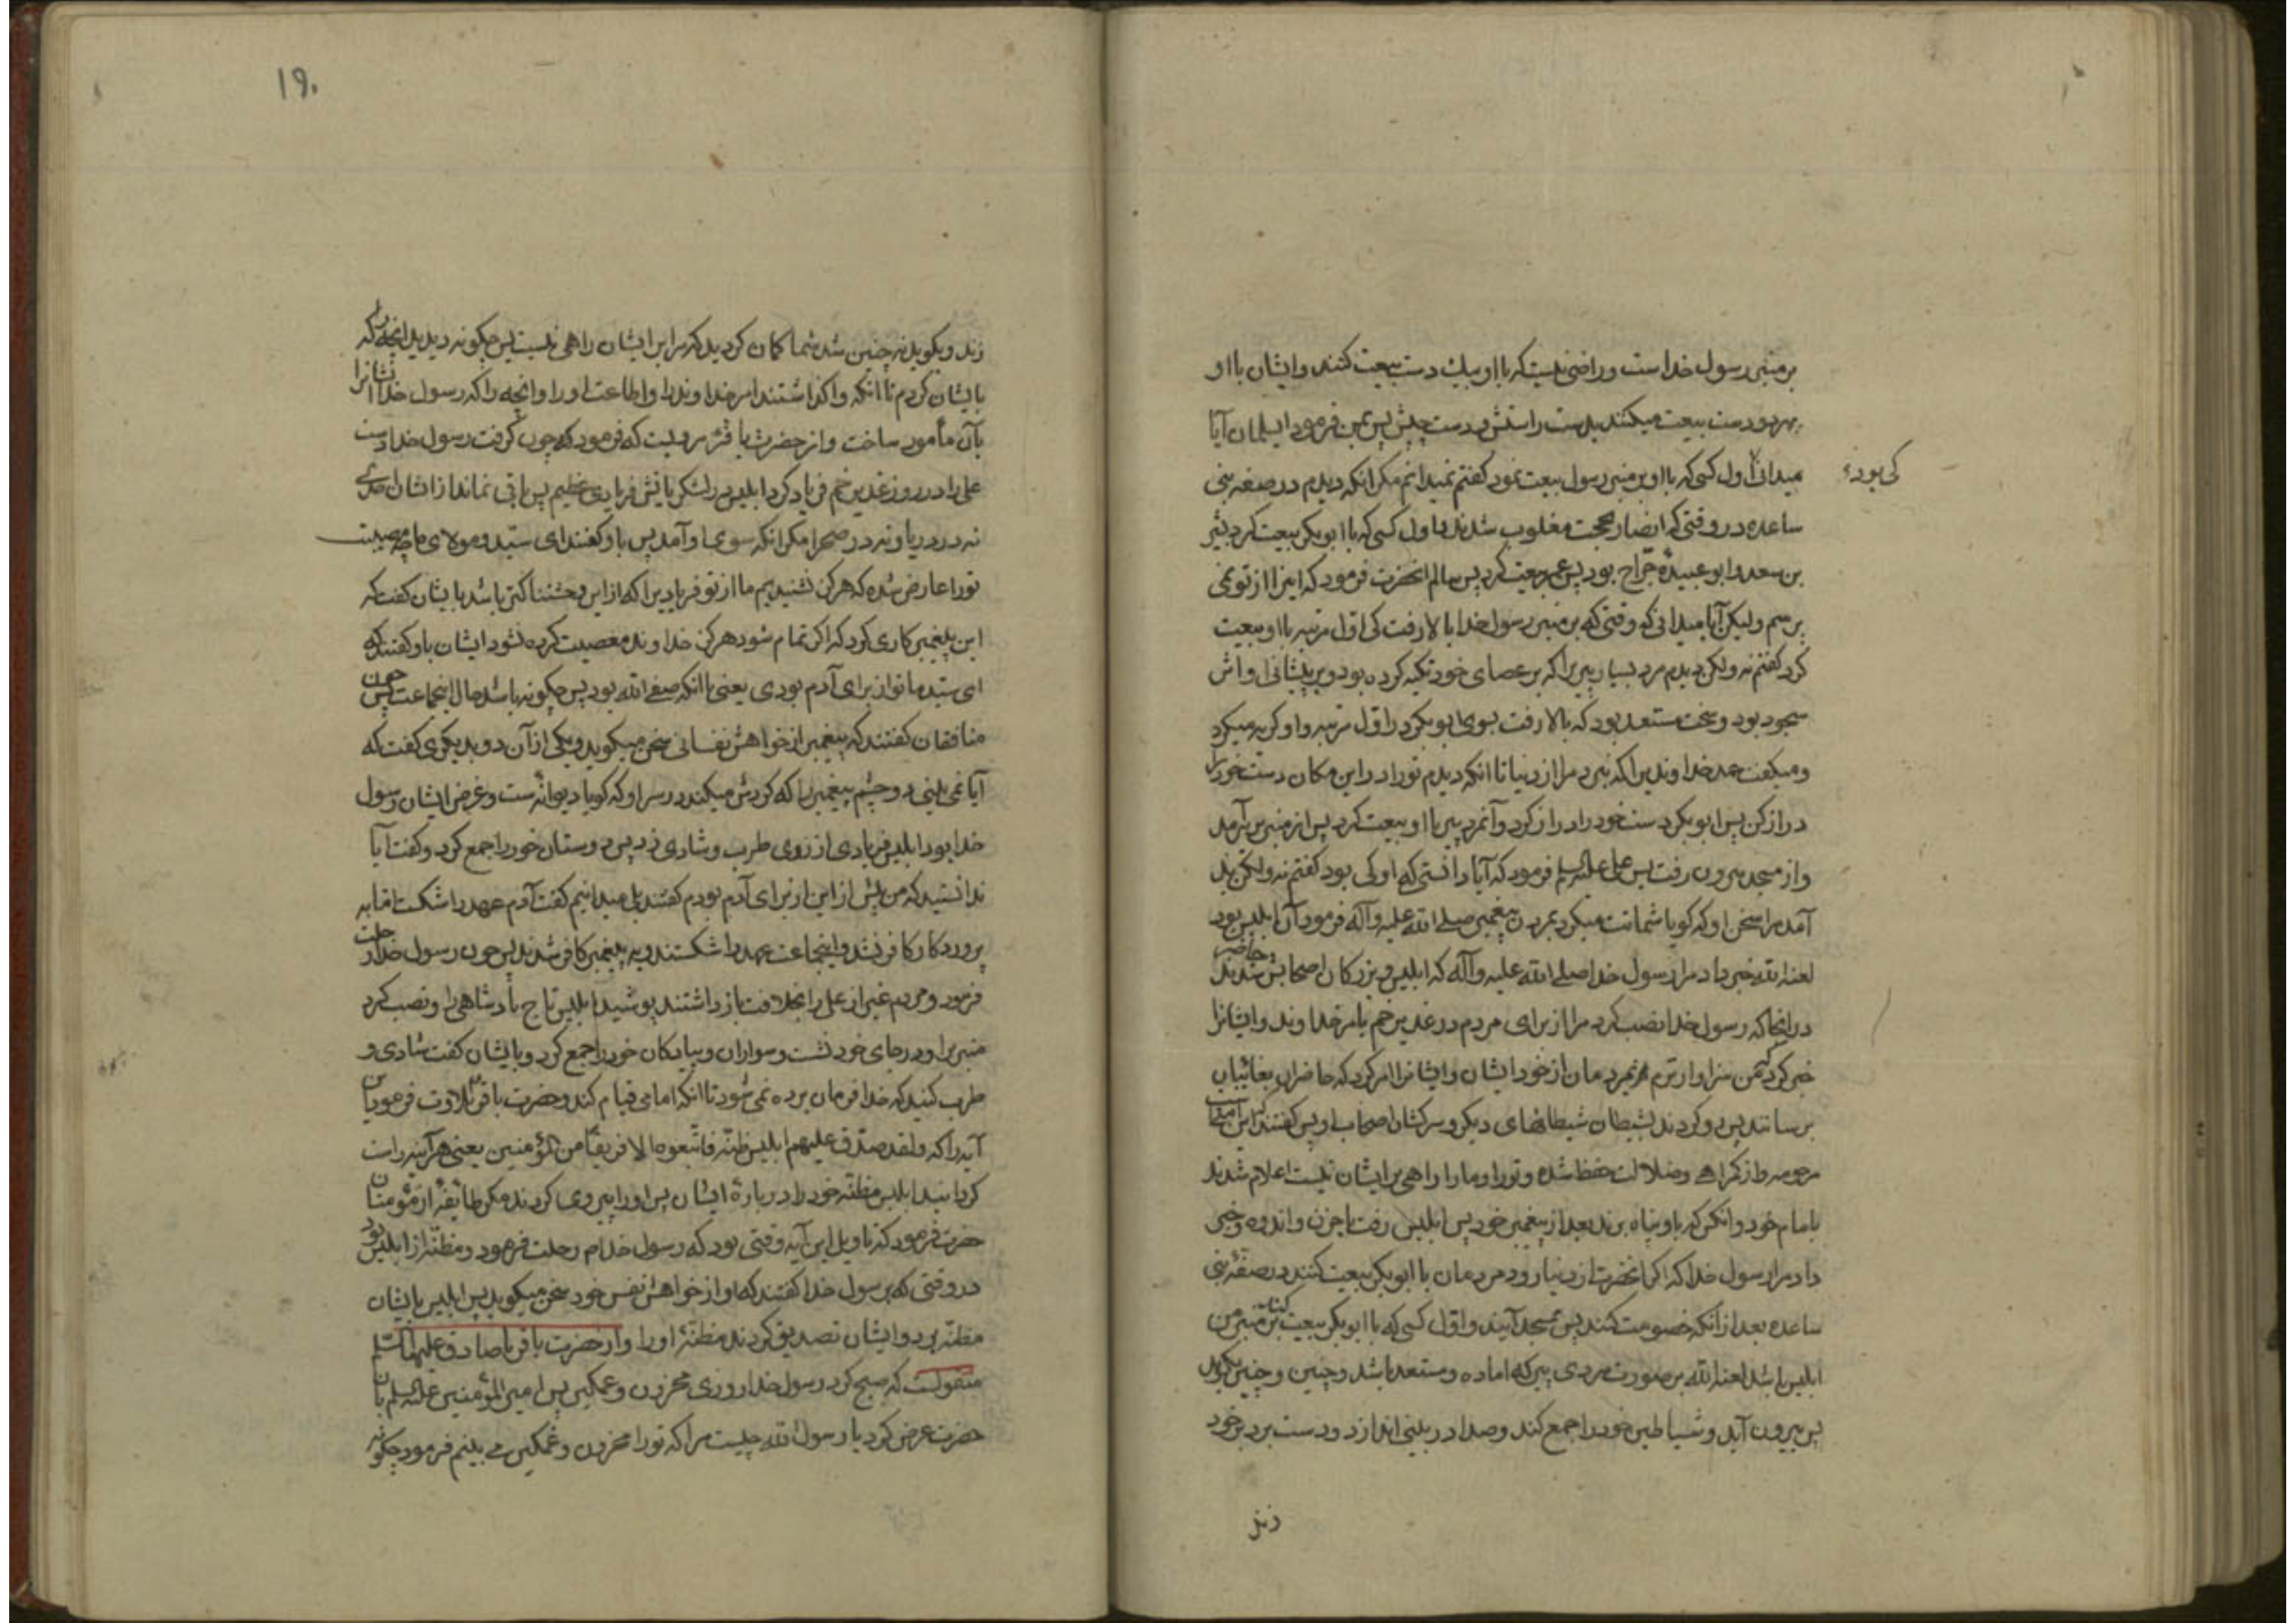 بر منبر رسول خداست و راضی نیست که با او بیک دست بیعت کنند و ایشان با او
بهر دو دست بیعت میکنند بدست راستش و دست چپش پس بمن فرمود ای سلمان آیا
میدانی اول کسی که با او بر منبر رسول بیعت نمود کفتم نمیدانم مکر انکه دیدم در صفه بنی
کی بود
ساعده در وقتی که انصار بحجت مغلوب شدند و اول کسی که با ابو بکر بیعت کرد بشر
بن سعد و ابو عبیدهٔ جرّاح بود پس عمر بیعت کرد پس سالم انحضرت فرمود که اینرا از تو نمی
پرسم ولیکن آیا میدانی که وقتی که بر منبر رسول خدا بالا رفت کی اول مرتبه با او بیعت
کرد کفتم نه ولکن دیدم مرد بسیار پیریرا که بر عصای خود تکیه کرده بود و بر پیشانی او اش
سجود بود و سخت مستعد بود که بالا رفت بسوی ابو بکر در اول مرتبه و او کریه میکرد
و میکفت حمد خداوندیرا که نبرد مرا از دنیا تا انکه دیدم تو را در این مکان دست خود را
دراز کن پس ابو بکر دست خود را دراز کرد و آنمرد پیر با او بیعت کرد پس از منبر بزیر آمد
و از مسجد بیرون رفت پس علی علیه السلم فرمود که آیا دانستی که او کی بود کفتم نه ولکن بد
آمد مرا سخن او که کویا شماتت میکرد بمردن پیغمبر صلی الله علیه و آله فرمود آن ابلیس بود
لعنه الله خبر داد مرا رسول خدا صلی الله علیه و آله که ابلیس و بزرکان اصحابش حاضر شدند
در انجا که رسول خدا نصب کرد مرا از برای مردم در غدیر خم بامر خداوند و ایشانرا
خبر کرد که من سزاوارترم بمردمان از خود ایشان و ایشانرا امر کرد که حاضران بغائبان
برسانند پس رو کردند بشیطان شیطانهای دیکر و سرکشان اصحاب او پس کفتند که این امت
مرحومه و از کمراهی و ضلالت حفظ شده و تو را و ما را راهی بر ایشان نیست اعلام شدند
بامام خود و انکس که باو پناه برند بعد از پیغمبر خود پس ابلیس رفت با حزن و اندوه و خبر
داد مرا رسول خدا که اکر انحضرت از دنیا رود مردمان با ابو بکر بیعت کنند در صفهٔ بنی
ساعده بعد از انکه خصومت کنند پس بمسجد آیند و اول کسی که با ابو بکر بیعت کند بر منبر من
ابلیس باشد لعنه الله بر صورت مردی پیر که اماده و مستعد باشد و چنین و چنین بکوید
پس بیرون آید و شیاطین خود را جمع کند و صدا در بینی اندازد و دست بر دبر خود
زند
۱۹۰
زند و بکوید نه چنین شد شما کمان کردید که مرا بر ایشان راهی نیست پس چکونه دیدید انچه را که
بایشان کردم تا انکه واکذاشتند امر خداوند را و اطاعت او را و انچه را که رسول خدا ایشانرا
بآن مأمور ساخت و از حضرت باقر مرویست که فرمود که چون کرفت رسول خدا دست
علی را در روز غدیر خم فریاد کرد ابلیس در لشکریانش فریادی عظیم پس باقی نماند از اشان احدی
نه در دریا و نه در صحرا مکر انکه سوی او آمد پس باو کفتند ای سیّد و مولای ما چه مصیبت
تو را عارض شده که هرکز نشنیدیم ما از تو فریادیرا که از این وحشتناکتر باشد بایشان کفت که
این پیغمبر کاری کرد که اکر تمام شود هرکز خداوند معصیت کرده نشود ایشان باو کفتند که
ای سید ما تو از برای آدم بودی یعنی با انکه صفی الله بود پس چکونه باشد حال اینجماعت پس چون
منافقان کفتند که پیغمبر از خواهش نفسانی سخن میکوید و یکی از آن دو بدیکری کفت که
آیا نمی بینی دو چشم پیغمبر را که کردش میکند در سر او که کویا دیوانه است و غرض ایشان رسول
خدا بود ابلیس فریادی از روی طرب و شادی زد پس دوستان خود را جمع کرد و کفت آیا
ندانستید که من پیش از این از برای آدم بودم کفتند بلی میدانیم کفت آدم عهد را شکست اما به
پروردکار کافر نشد و اینجماعت عهد را شکستند و به پیغمبر کافر شدند پس چون رسول خدا رحلت
فرمود و مردم غیر از علی را بخلافت باز داشتند پوشید ابلیس تاج پادشاهی را و نصب کرد
منبریرا و در جای خود نشست و سواران و پیادکان خود را جمع کرد و بایشان کفت شادی و
طرب کنید که خدا فرمان برده نمی شود تا انکه امامی قیام کند و حضرت باقر تلاوت فرمود این
آیه را که ولقد صدّق علیهم ابلیس ظنّه فاتّبعوه الا فریقًا من المؤمنین یعنی هر آینه راست
کردانید ابلیس مظنّه خود را در بارهٔ ایشان پس او را پیروی کردند مکر طایفهٔ از مؤمنان
حضرت فرمود که تاویل این آیه وقتی بود که رسول خدا م رحلت فرمود و مظنّه از ابلیس بود
در وقتی که برسول خدا کفتند که او از خواهش نفس خود سخن میکوید پس ابلیس بایشان
مظنّه برد و ایشان تصدیق کردند مظنّهٔ او را و از حضرت باقر یا صادق علیهما السلم
منقولست که صبح کرد رسول خدا روزی محزون و غمکین پس امیر المؤمنین علیه السلم بان
حضرت عرض کرد یا رسول الله چیست مرا که تو را محزون و غمکین می بینم فرمود چکونه